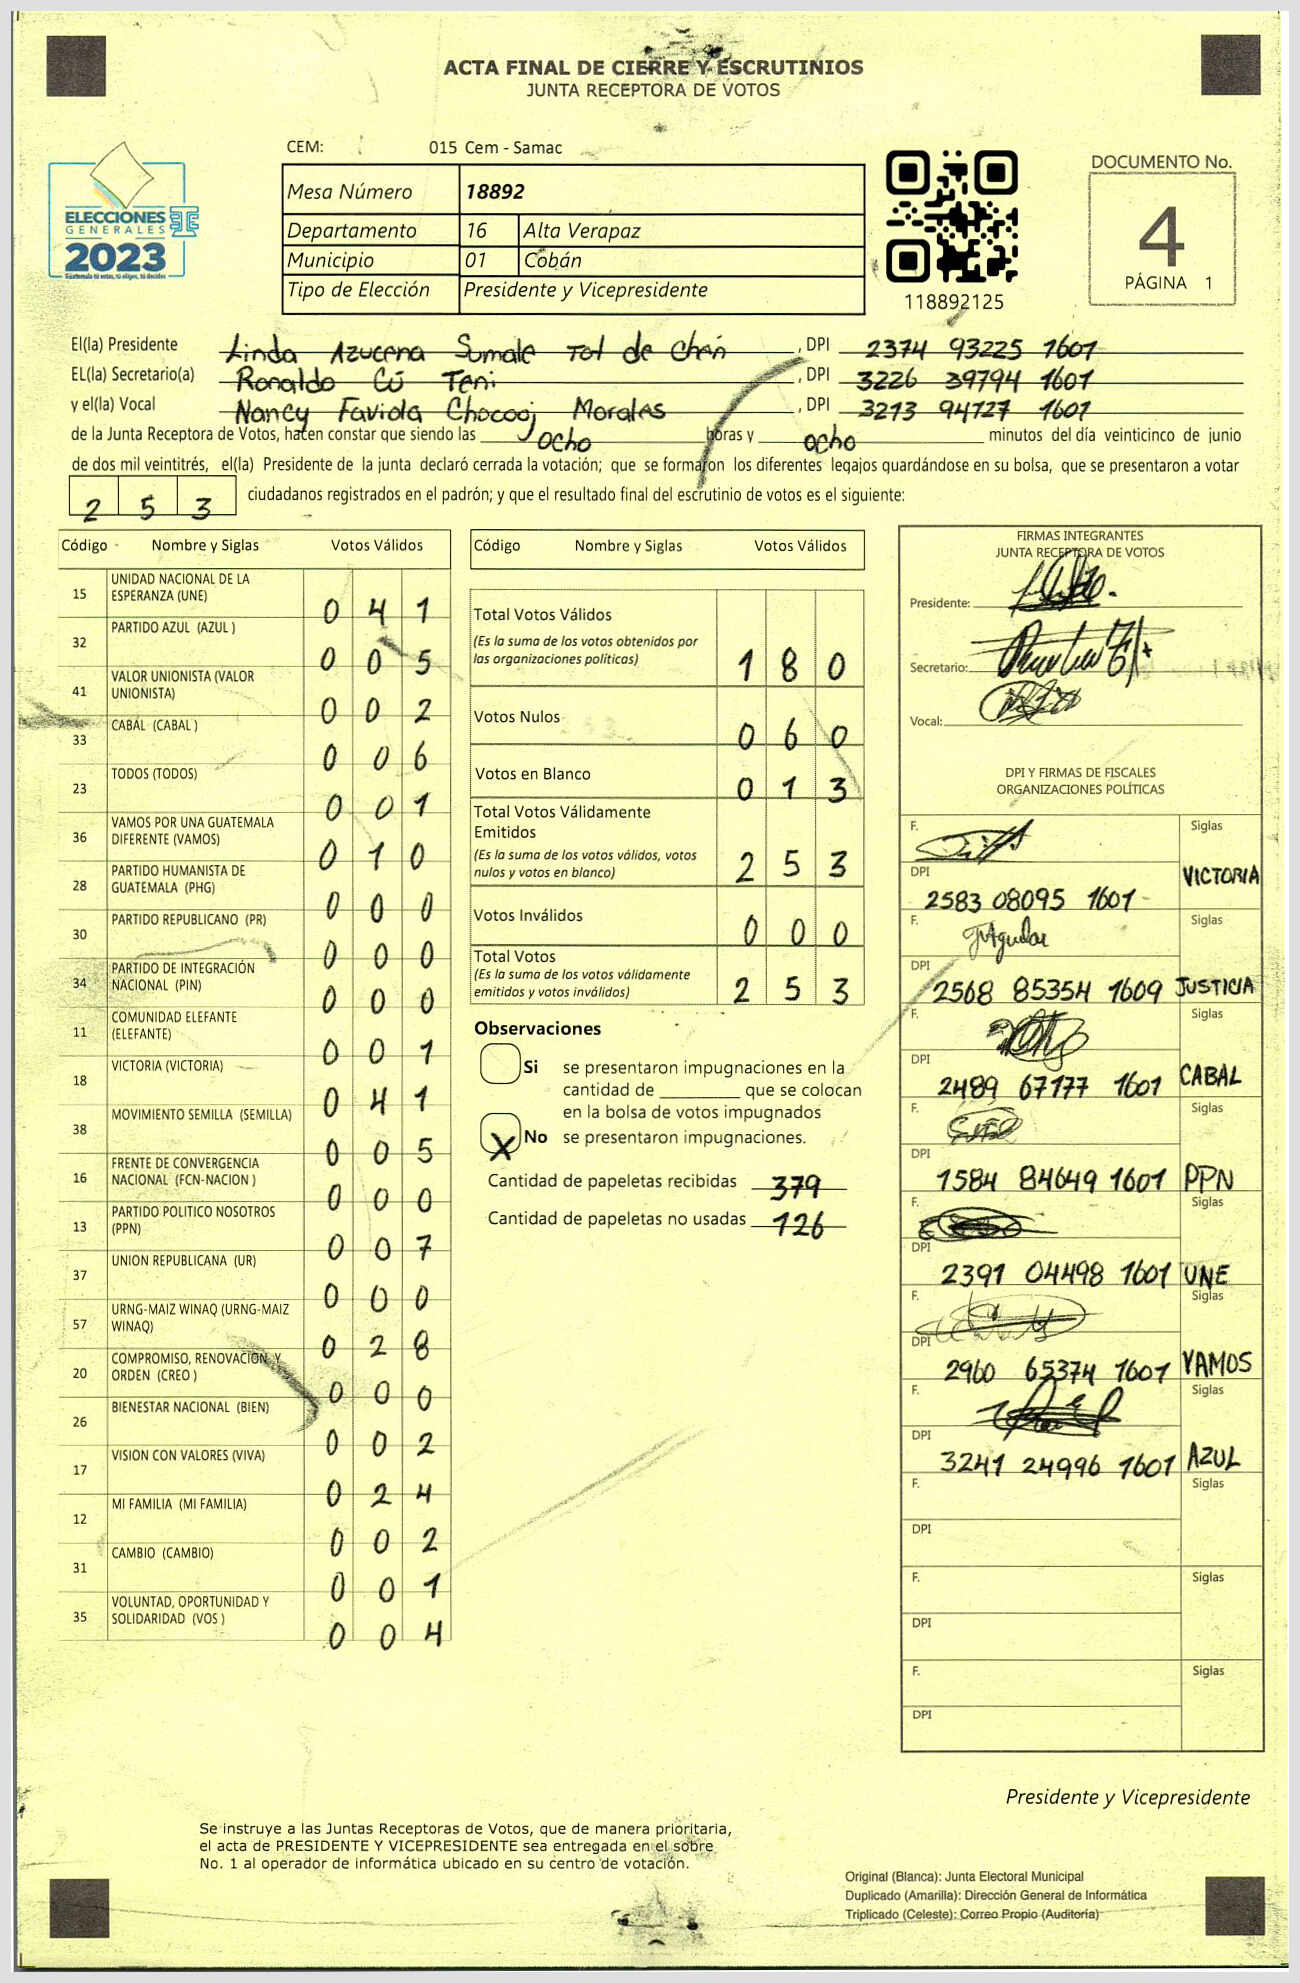 ACTA FINAL DE CIERRE Y ESCRUTINIOS
JUNTA RECEPTORA DE VOTOS
CEM: 015 Cem - Samac
Mesa Número 18892
Departamento 16 Alta Verapaz
Municipio 01 Cobán
Tipo de Elección Presidente y Vicepresidente
ELECCIONES
GENERALES
2023
Guatemala tú votas, tú eliges, tú decides
118892125
DOCUMENTO No.
4
PÁGINA 1
El(la) Presidente Linda Azucena Sumale Tol de Chén, DPI 2374 93225 1601
EL(la) Secretario(a) Ronaldo Cú Teni, DPI 3226 39794 1601
y el(la) Vocal Nancy Faviola Chocooj Morales, DPI 3213 94727 1601
de la Junta Receptora de Votos, hacen constar que siendo las ocho horas y ocho minutos del día veinticinco de junio
de dos mil veintitrés, el(la) Presidente de la junta declaró cerrada la votación; que se formaron los diferentes legajos guardándose en su bolsa, que se presentaron a votar
2 5 3 ciudadanos registrados en el padrón; y que el resultado final del escrutinio de votos es el siguiente:
Código Nombre y Siglas Votos Válidos
15 UNIDAD NACIONAL DE LA
ESPERANZA (UNE) 0 4 1
32 PARTIDO AZUL (AZUL ) 0 0 5
41 VALOR UNIONISTA (VALOR
UNIONISTA) 0 0 2
33 CABAL (CABAL ) 0 0 6
23 TODOS (TODOS) 0 0 1
36 VAMOS POR UNA GUATEMALA
DIFERENTE (VAMOS) 0 1 0
28 PARTIDO HUMANISTA DE
GUATEMALA (PHG) 0 0 0
30 PARTIDO REPUBLICANO (PR) 0 0 0
34 PARTIDO DE INTEGRACIÓN
NACIONAL (PIN) 0 0 0
11 COMUNIDAD ELEFANTE
(ELEFANTE) 0 0 1
18 VICTORIA (VICTORIA) 0 4 1
38 MOVIMIENTO SEMILLA (SEMILLA) 0 0 5
16 FRENTE DE CONVERGENCIA
NACIONAL (FCN-NACION ) 0 0 0
13 PARTIDO POLITICO NOSOTROS
(PPN) 0 0 7
37 UNION REPUBLICANA (UR) 0 0 0
57 URNG-MAIZ WINAQ (URNG-MAIZ
WINAQ) 0 2 8
20 COMPROMISO, RENOVACIÓN Y
ORDEN (CREO ) 0 0 0
26 BIENESTAR NACIONAL (BIEN) 0 0 2
17 VISION CON VALORES (VIVA) 0 2 4
12 MI FAMILIA (MI FAMILIA) 0 0 2
31 CAMBIO (CAMBIO) 0 0 1
35 VOLUNTAD, OPORTUNIDAD Y
SOLIDARIDAD (VOS ) 0 0 4
Código Nombre y Siglas Votos Válidos
Total Votos Válidos
(Es la suma de los votos obtenidos por
las organizaciones políticas) 1 8 0
Votos Nulos 0 6 0
Votos en Blanco 0 1 3
Total Votos Válidamente
Emitidos
(Es la suma de los votos válidos, votos
nulos y votos en blanco) 2 5 3
Votos Inválidos 0 0 0
Total Votos
(Es la suma de los votos válidamente
emitidos y votos inválidos) 2 5 3
Observaciones
Si se presentaron impugnaciones en la
cantidad de ________ que se colocan
en la bolsa de votos impugnados
X No se presentaron impugnaciones.
Cantidad de papeletas recibidas 379
Cantidad de papeletas no usadas 126
FIRMAS INTEGRANTES
JUNTA RECEPTORA DE VOTOS
Presidente:
Secretario:
Vocal:
DPI Y FIRMAS DE FISCALES
ORGANIZACIONES POLÍTICAS
F. Siglas
DPI 2583 08095 1601 VICTORIA
F. JAguilar Siglas
DPI 2568 85354 1609 JUSTICIA
F. Siglas
DPI 2489 67177 1601 CABAL
F. Siglas
DPI 1584 84649 1601 PPN
F. Siglas
DPI 2391 04498 1601 UNE
F. Siglas
DPI 2960 65374 1601 VAMOS
F. Siglas
DPI 3241 24996 1601 AZUL
F. Siglas
DPI
F. Siglas
DPI
F. Siglas
DPI
Presidente y Vicepresidente
Se instruye a las Juntas Receptoras de Votos, que de manera prioritaria,
el acta de PRESIDENTE Y VICEPRESIDENTE sea entregada en el sobre
No. 1 al operador de informática ubicado en su centro de votación.
Original (Blanca): Junta Electoral Municipal
Duplicado (Amarilla): Dirección General de Informática
Triplicado (Celeste): Correo Propio (Auditoría)